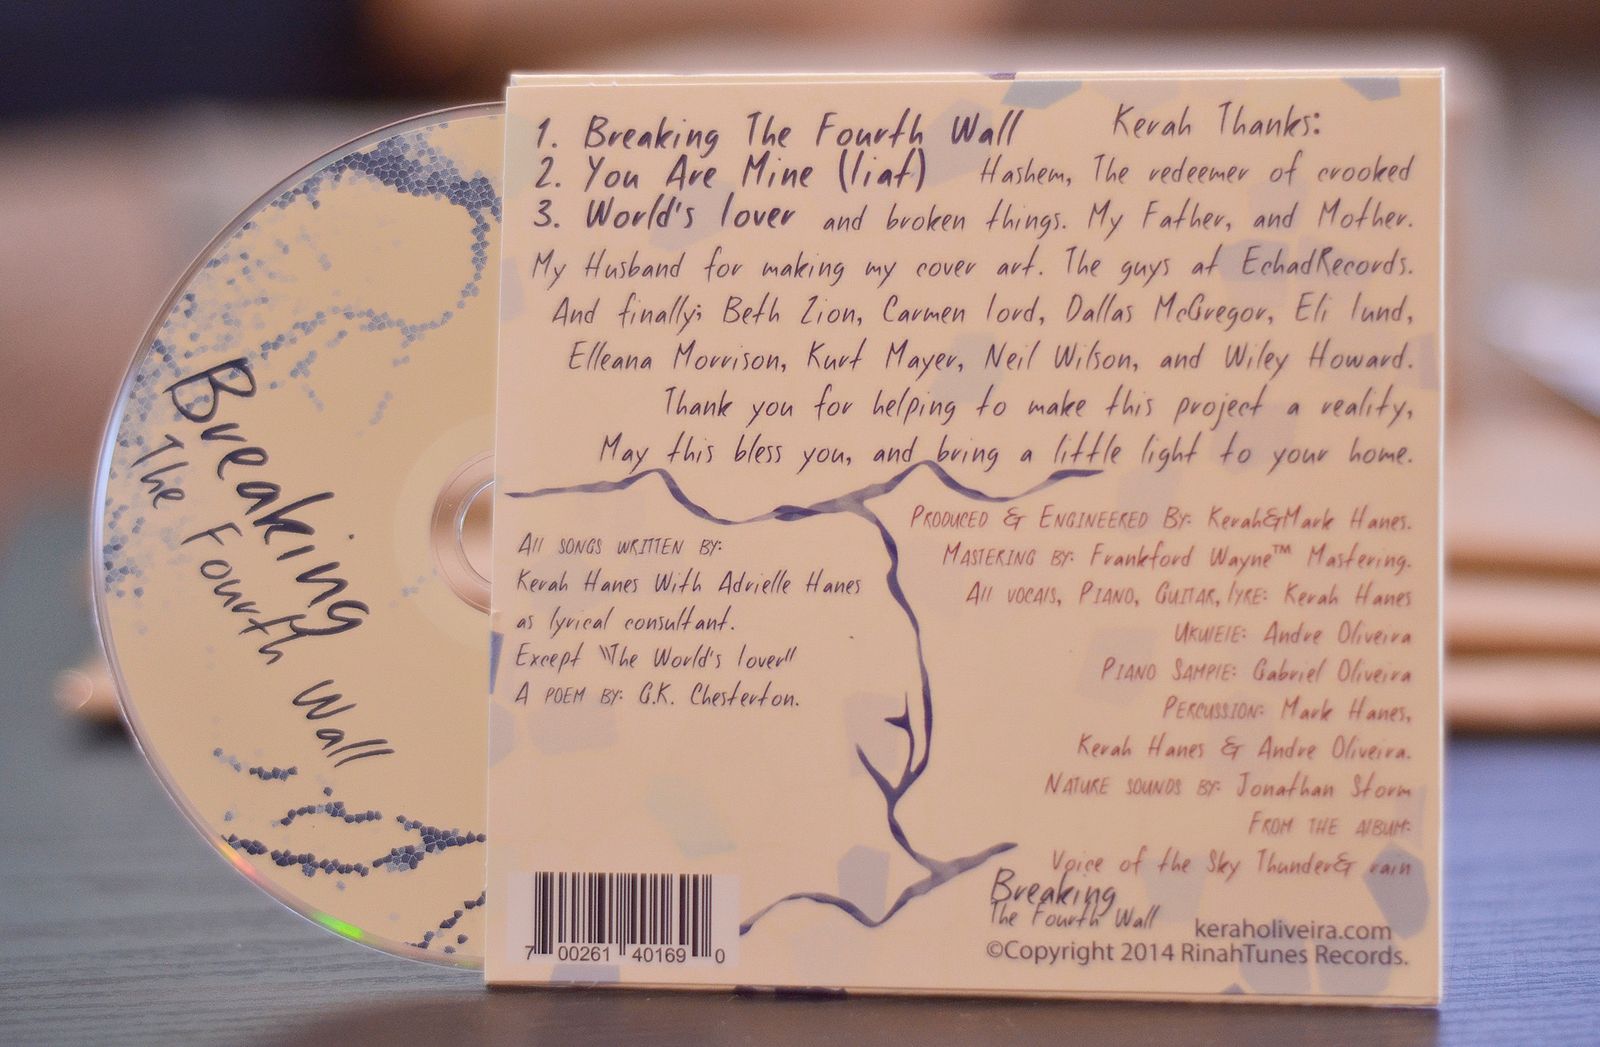 Breaking
The Fourth Wall
1. Breaking The Fourth Wall
2. You Are Mine (liat)
3. World's lover
Kerah Thanks:
Hashem, The redeemer of crooked
and broken things. My Father, and Mother.
My Husband for making my cover art. The guys at EchadRecords.
And finally; Beth Zion, Carmen lord, Dallas McGregor, Eli lund,
Elleana Morrison, Kurt Mayer, Neil Wilson, and Wiley Howard.
Thank you for helping to make this project a reality,
May this bless you, and bring a little light to your home.
All songs written by:
Kerah Hanes With Adrielle Hanes
as lyrical consultant.
Except "The World's lover"
A poem by: G.K. Chesterton.
Produced & Engineered By: Kerah&Mark Hanes.
Mastering by: Frankford Wayne™ Mastering.
All vocals, Piano, Guitar, lyre: Kerah Hanes
Ukulele: Andre Oliveira
Piano Sample: Gabriel Oliveira
Percussion: Mark Hanes,
Kerah Hanes & Andre Oliveira.
Nature sounds by: Jonathan Storm
From the album:
Voice of the Sky Thunder& rain
Breaking
The Fourth Wall
keraholiveira.com
©Copyright 2014 RinahTunes Records.
7 00261 40169 0